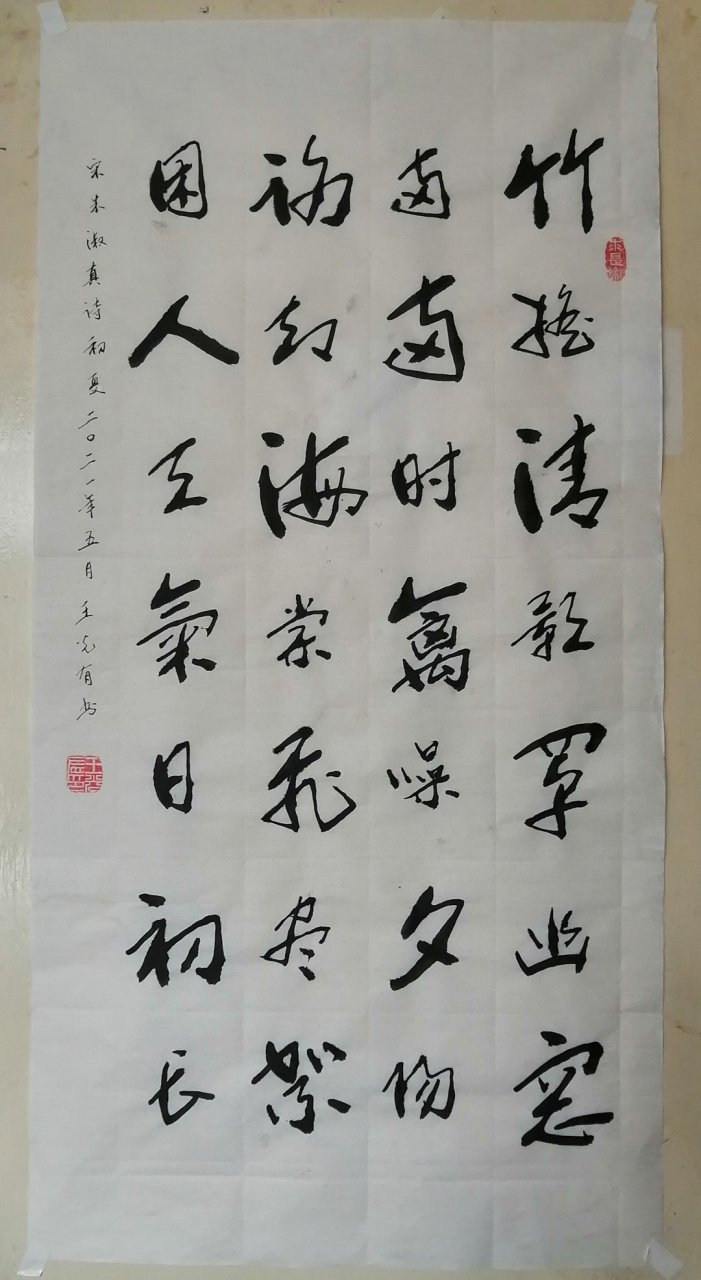 竹摇清影罩幽窓
两两时禽噪夕阳
谢却海棠飞尽絮
困人天氣日初长
宋朱淑真诗初夏二〇二一年五月王光有书